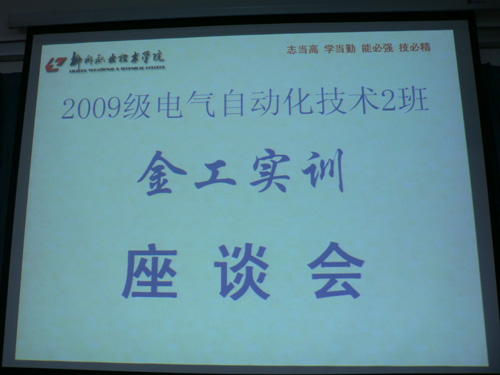 柳州职业技术学院
LIUZHOU VOCATIONAL & TECHNICAL COLLEGE
志当高 学当勤 能必强 技必精
2009级电气自动化技术2班
金工实训
座谈会